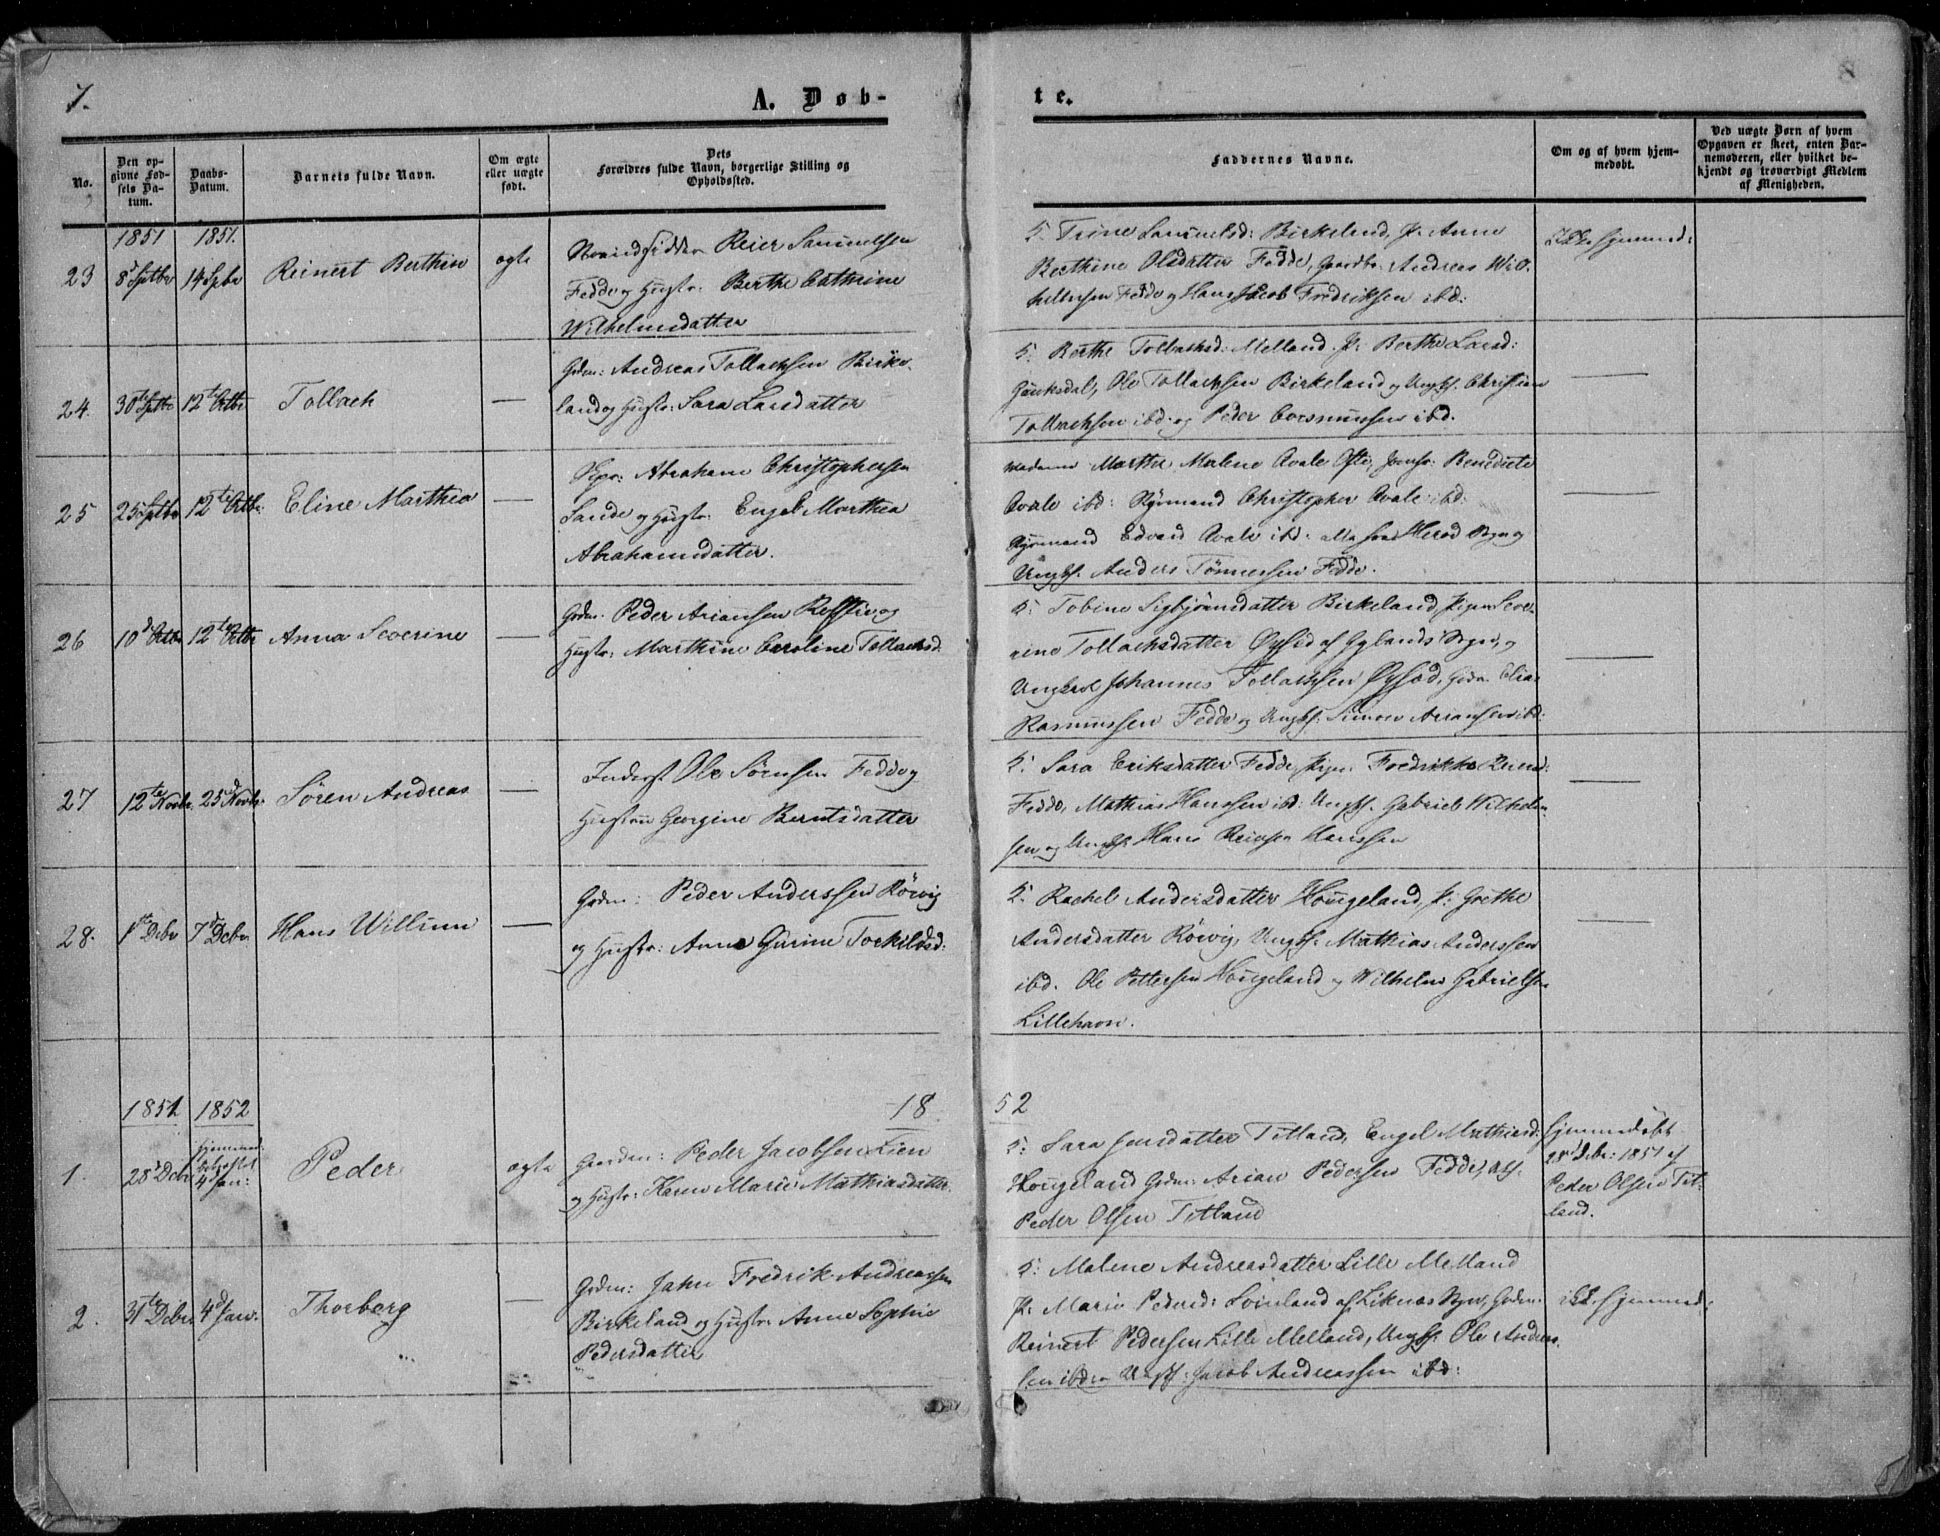 7.
8
A. Døb-
te.
No.
Den op-
givne Fød-
sels Da-
tum.
Daabs-
Datum.
Barnets fulde Navn.
Om ægte
eller uægte
født.
Dets
Forældres fulde Navn, borgerlige Stilling og
Opholdssted.
Faddernes Navne.
Om og af hvem hjem-
medøbt.
Ved uægte Børn af hvem
Opgaven er skeet, enten Bar-
nemoderen, eller hvilket be-
kjendt og troværdigt Medlem
af Menigheden.
1851 1851.
23 8d Septbr 14 Spbr Reinert Berthin ægte
Reier Samuelsen
Fedde og Hustr: Berthe Cathrine
Wilhelmsdatter
K. Trine Samuelsd: Birkeland, P. Anne
Berthine Olsdatter Fedde, Gaardbr: Andreas Wil-
helmsen Fedde og Hans Jacob Fredriksen ibd:
Ikke hjemmed:
24. 30te Septbr 12te Octbr Tollach —
Grdm: Andreas Tollachsen Birke-
land og Hustr: Sara Larsdatter
K. Berthe Tollachsd: Melland. P: Berthe Larsd:
Gucksdal, Ole Tollachsen Birkeland og Ungk. Christian
Tollachsen ibd. og Peder Corsmussen ibd.
—
25 25 Septbr 12te Octbr: Eline Marthea —
Abraham Christophersen
Sande og Hustr. Engel Marthea
Abrahamsdatter.
Madame Marthe Malene Avale Jomfr: Benedicte
Avale ibd: Styrmand Christopher Avale ibd.
Edvard Avale ibd: alle fra Herad Sogn og
Ungk. Anders Tønnessen Fedde.
—
26 10d Octbr 12te Octbr Anna Severine —
Grdm. Peder Ariansen Refsti og
Hustr: Marthine Caroline Tollachsd.
K: Tobine Sigbjørnsdatter Birkeland, Pigen Seve-
rine Tollachsdatter Øysæd af Gylands Sogn, og
Ungkarl Johannes Tollachsen Øysæd, Grdm. Elias
Rasmussen Fedde og Ungk. Simon Ariansen ibd:
—
27 12te Novbr. 25d Novbr. Søren Andreas —
Inderst Ole Sørensen Fedde og
Hustru Georgine Berntsdatter
K: Sara Eriksdatter Fedde Pigen Fredrikke
Fedde, Mathias Hanssen ibd: Ungk. Gabriel Wilhelm-
sen og Ungk. Hans Reiersen Hanssen
—
28. 1ste Debr 7d Debr Hans Willum —
Grdm: Peder Anderssen Rørvig
og Hustr: Anne Gurine Torkildsd:
K: Rachel Andersdatter Hougeland, P: Grethe
Andersdatter Rørvig, Ungk. Mathias Anderssen
ibd. Ole Pettersen Hougeland og Wilhelm Gabrielsen
Lillehavn.
—
1851 1852
18 52
1. 28d Debr
4d Jan:
Peder ægte
Gaardm: Peder Jacobsen Lien
og Hustr: Karen Marie Mathiasdatter
K: Sara Jensdatter Titland, Engel Mathiasd.
Hougeland Grdm: Arian Pedersen Fedde,
Peder Olsen Titland
Hjemmedøbt
28d Debr: 1851 af
Peder Olsen Tit-
land.
2. 31te Debr. 4d Janr. Thorborg —
Grdm: Jahn Fredrik Andreassen
Birkeland og Hustr: Anne Sophie
Pedersdatter
K: Malene Andreasdatter Lille Melland
P: Marie Pedersd: Loineland af Liknæs Sogn, Grdm.
Reinert Pedersen Lille Melland, Ungk. Ole Andreas-
sen ibd: og Ungk: Jacob Andreassen ibd:
ikke hjemmed: